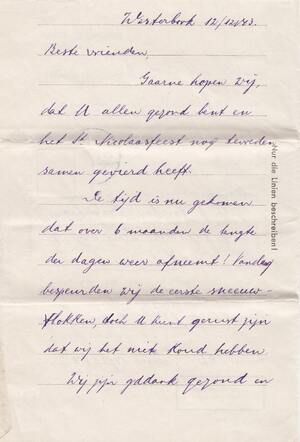 Westerbork 12/12043.
Beste vrienden,
Gaarne hopen wij,
dat U allen gezond bent en
het St. Nicolaasfeest nog tevreden
samen gevierd heeft.
De tijd is nu gekomen
dat over 6 maanden de lengte
der dagen weer afneemt! Vandaag
bespeurden wij de eerste sneeuw-
vlokken, doch U kunt gerust zijn
dat wij het niet koud hebben.
Wij zijn gddank gezond en
Nur die Linien beschreiben!